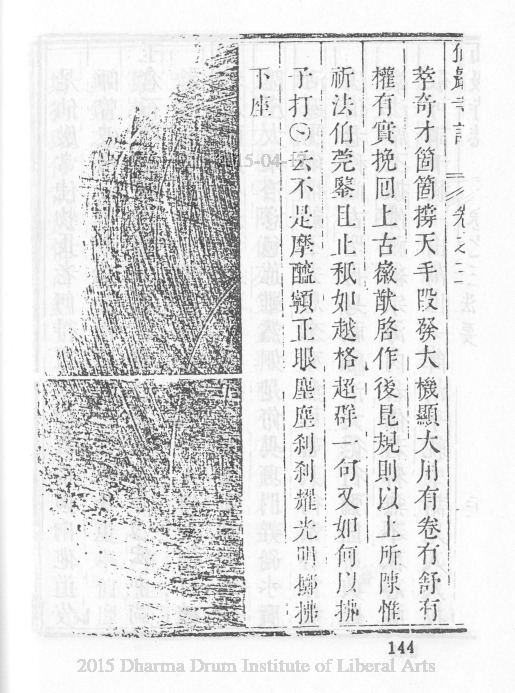 仙巖寺誌 卷之二
萃奇才箇箇撐天手段發大機顯大用有卷有舒有
權有實挽回上古徽猷啓作後昆規則以上所陳惟
祈法伯莞鑒且止秖如越格超群一句又如何以拂
子打⊙云不是摩醯正眼塵塵刹刹耀光明擲拂
下座
144
2015 Dharma Drum Institute of Liberal Arts